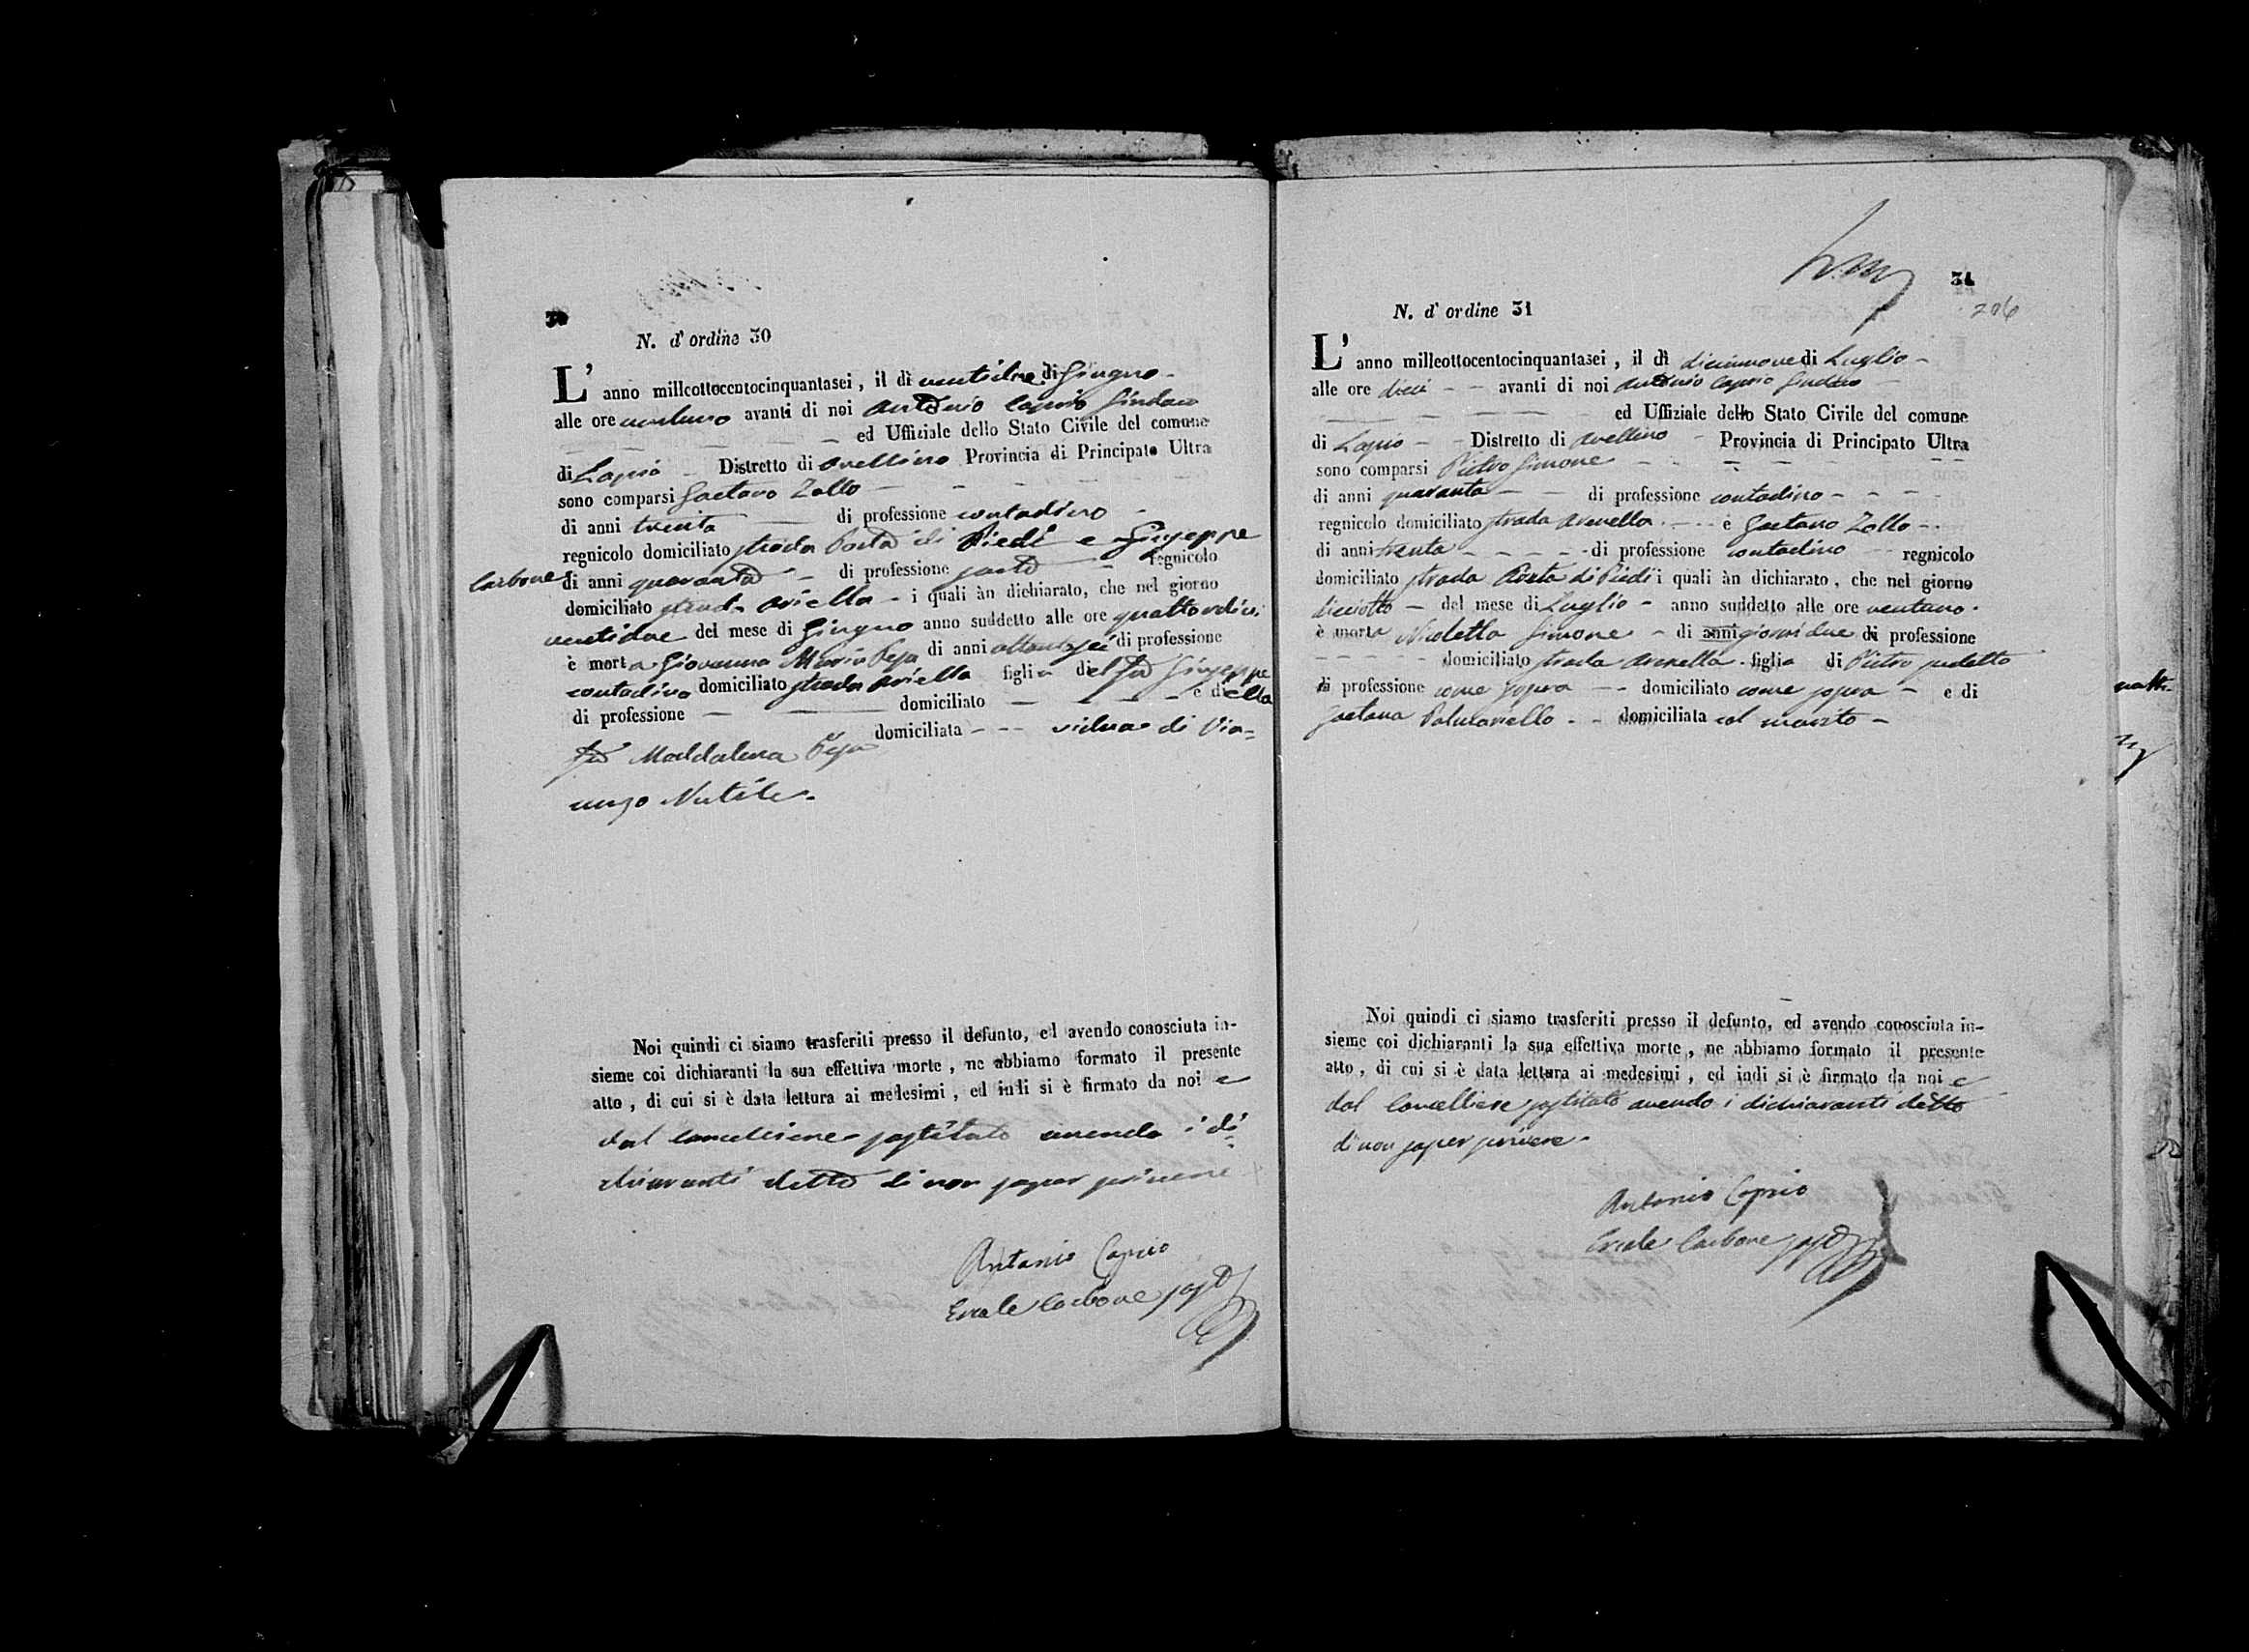 30
N. d' ordine 30
L' anno millcottocentocinquantasei, il dì ventidue di Giugno
alle ore ventuno avanti di noi Antonio Caprio Sindaco
ed Uffiziale dello Stato Civile del comune
di Lapio Distretto di Avellino Provincia di Principato Ultra
sono comparsi Gaetano Zollo
di anni trenta di professione contadino
regnicolo domiciliato strada Porta di Piedi e Giuseppe
Carbone di anni quaranta di professione sarto regnicolo
domiciliato strada Ariella i quali àn dichiarato, che nel giorno
ventidue del mese di Giugno anno suddetto alle ore quattordici
è morta Giovanna Maria Pepa di anni ottantasei di professione
contadina domiciliato strada Ariella figlia del fu Giuseppe
di professione domiciliato e della
fu Maddalena Pepa domiciliata vidua di Vin=
cenzo Nutile.
Noi quindi ci siamo trasferiti presso il defunto, ed avendo conosciuta in-
sieme coi dichiaranti la sua effettiva morte, ne abbiamo formato il presente
atto, di cui si è data lettura ai medesimi, ed indi si è firmato da noi e
dal Cancelliere sostituto avendo i di
chiaranti detto di non saper scrivere
Antonio Caprio
Ercole Carbone sosto
31
206
N. d' ordine 31
L' anno milleottocentocinquantasei, il dì diciannove di Luglio
alle ore dieci avanti di noi Antonio Caprio Sindaco
ed Uffiziale dello Stato Civile del comune
di Lapio Distretto di Avellino Provincia di Principato Ultra
sono comparsi Pietro Simone
di anni quaranta di professione contadino
regnicolo domiciliato strada Arenella e Gaetano Zollo
di anni trenta di professione contadino regnicolo
domiciliato strada Porta di Piedi i quali àn dichiarato, che nel giorno
diciotto del mese di Luglio anno suddetto alle ore ventuno
è morta Nicoletta Simone di anni giorni due di professione
domiciliato strada Arenella figlia di Pietro sudetto
di professione come sopra domiciliato come sopra e di
Gaetana Palmariello domiciliata col marito
Noi quindi ci siamo trasferiti presso il defunto, ed avendo conosciuta in-
sieme coi dichiaranti la sua effettiva morte, ne abbiamo formato il presente
atto, di cui si è data lettura ai medesimi, ed indi si è firmato da noi e
dal Cancelliere sostituto avendo i dichiaranti detto
di non saper scrivere
Antonio Caprio
Ercole Carbone sosto